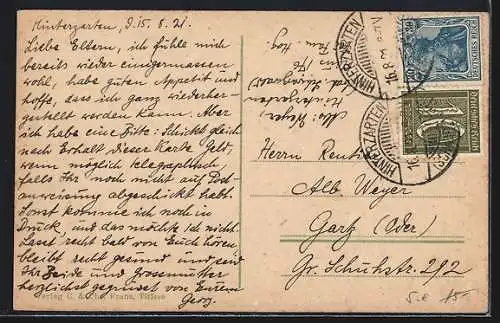 Hinterzarten, d. 15. 8. 21.
Liebe Eltern, ich fühle mich
bereits wieder einigermassen
wohl, habe guten Appetit und
hoffe, dass ich ganz wiederher-
gestellt werden kann. Aber
ich habe eine Bitte: Schickt gleich
nach Erhalt dieser Karte Geld,
wenn möglich telegraphisch,
falls Ihr noch nicht auf Post-
anweisung abgeschickt habt.
Sonst komme ich noch in
Druck, und das möchte ich nicht.
Lasst recht bald von Euch hören
bleibt recht gesund und seid
Ihr Beide und Grossmutter
herzlichst gegrüsst von Eurem
Georg.
Verlag C. & Franz, Titisee
Abs: Weyer,
Hinterzarten
HINTERZARTEN
16.8.21
HINTERZARTEN
16.
Deutsches Reich
Herrn Rentier
Alb. Weyer
Gartz (Oder)
Gr. Schuhstr. 212
15.-